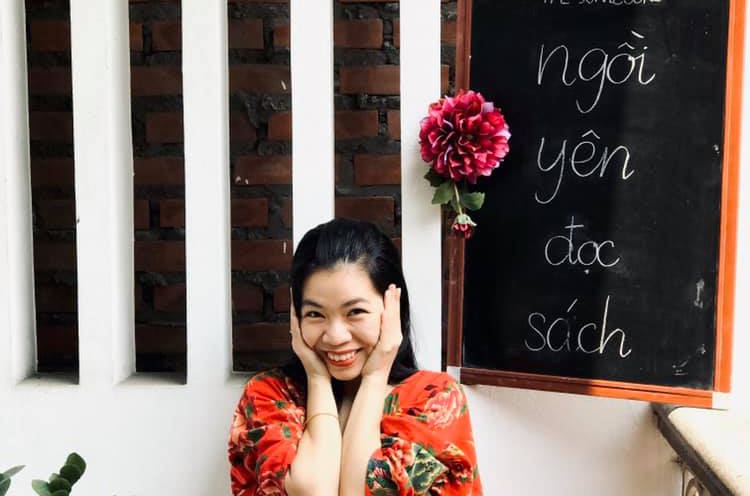 ngồi
yên
đọc
sách